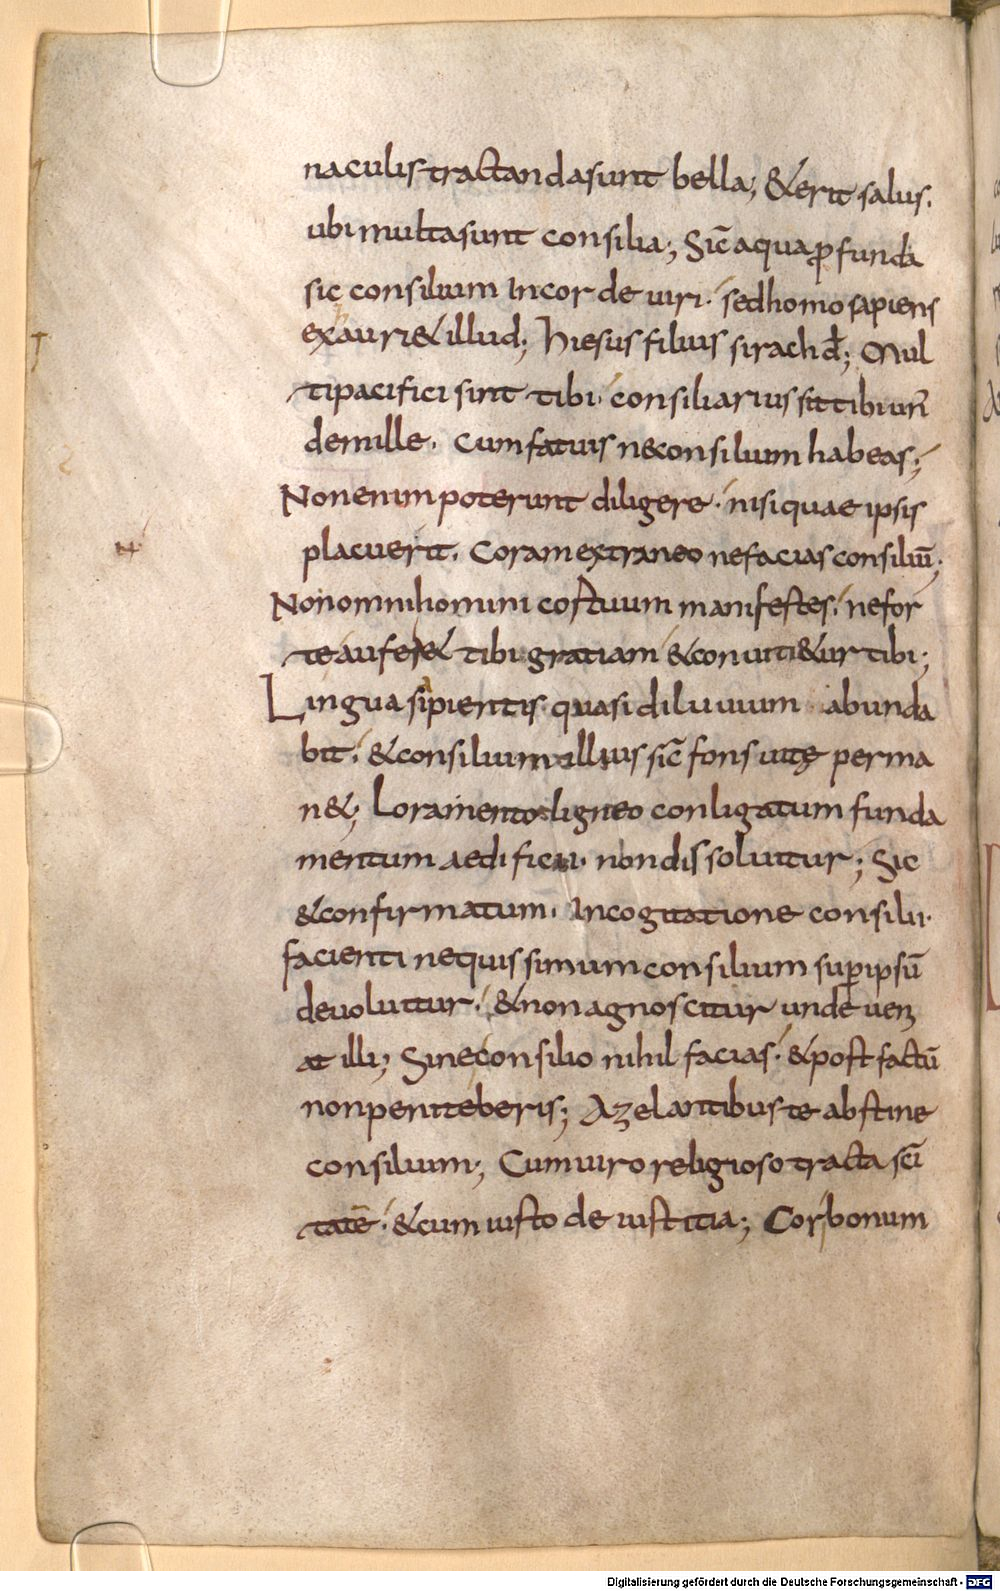 naculis tractanda sunt bella; & erit salus.
ubi multa sunt consilia; Sic̄ aqua ꝓfunda
sic consilium in corde uiri· sed homo sapiens
exauri& illud; Hiesus filius sirach dꝉ; Mul
ti pacifici sint tibi· consiliarius sit tibi un̄
de mille. Cum fatuis ne consilium habeas;
Non enim poterunt diligere· nisi quae ipsis
placuerit. Coram extraneo ne facias consiliū;
Non omni homini cor tuum manifestes. ne for
te aufer& tibi gratiam & conuiti&ur tibi;
Lingua sapientis quasi diluuium abunda
bit. & consilium illius sic̄ fons uitę perma
n&; Loramento ligneo conligatum funda
mentum aedificii· non dissoluitur; Sic
& confirmatum. In cogitatione consilii·
facienti nequissimum consilium sup̄ ipsū
deuoluitur. & non agnoscitur unde ueni
at illi; Sine consilio nihil facias· & post factū
non peniteberis; A zelantibus te abstine
consilium; Cum uiro religioso tracta sc̄i
tatē· & cum iusto de iustitia; Cor bonum
Digitalisierung gefördert durch die Deutsche Forschungsgemeinschaft - DFG